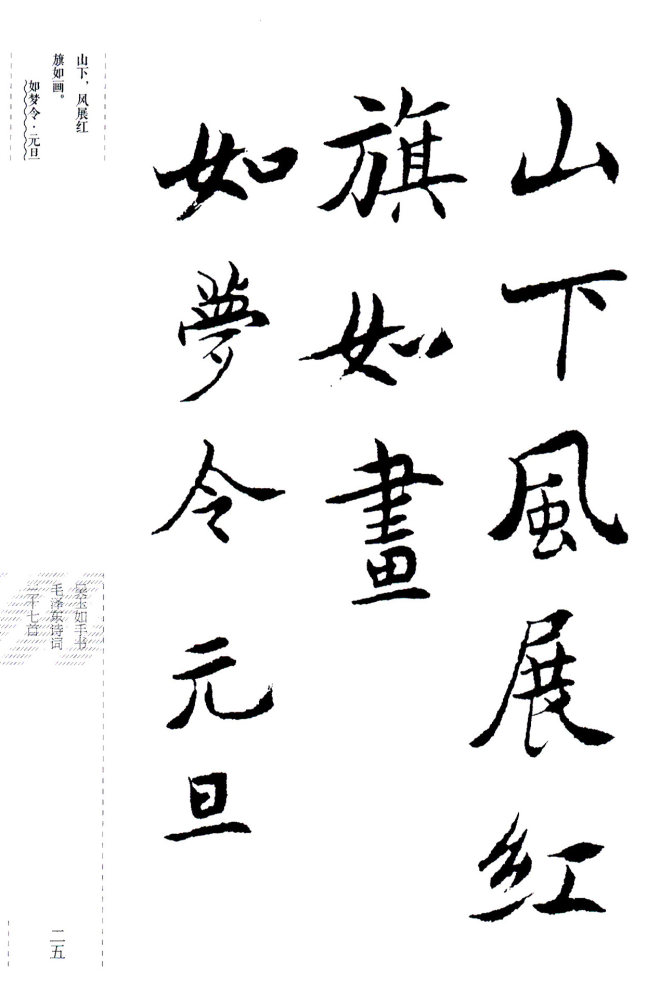 山下風展紅
旗如畫
如夢令元旦
山下，风展红
旗如画。
如梦令·元旦
吴玉如手书
毛泽东诗词
二十七首
二五